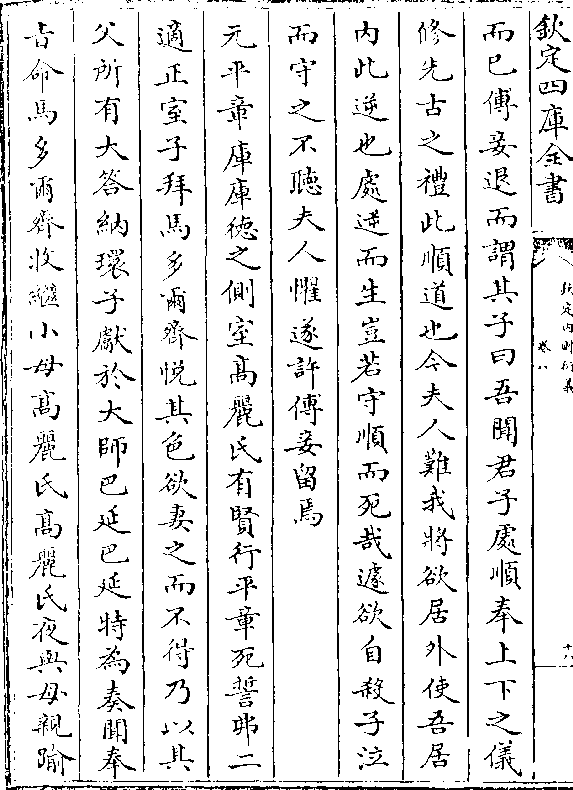 欽定四庫全書
欽定內則衍義
卷八
十八
而已傅妾退而謂其子曰吾聞君子處順奉上下之儀
修先古之禮此順道也今夫人難我將欲居外使吾居
內此逆也處逆而生豈若守順而死哉遽欲自殺子泣
而守之不聽夫人懼遂許傅妾留焉
元平章庫庫徳之側室髙麗氏有賢行平章死誓弗二
適正室子拜馬多爾齊悦其色欲妻之而不得乃以其
父所有大答納環子獻於大師巴延巴延特為奏聞奉
古命馬多爾齊收繼小母髙麗氏髙麗氏夜與母親踰